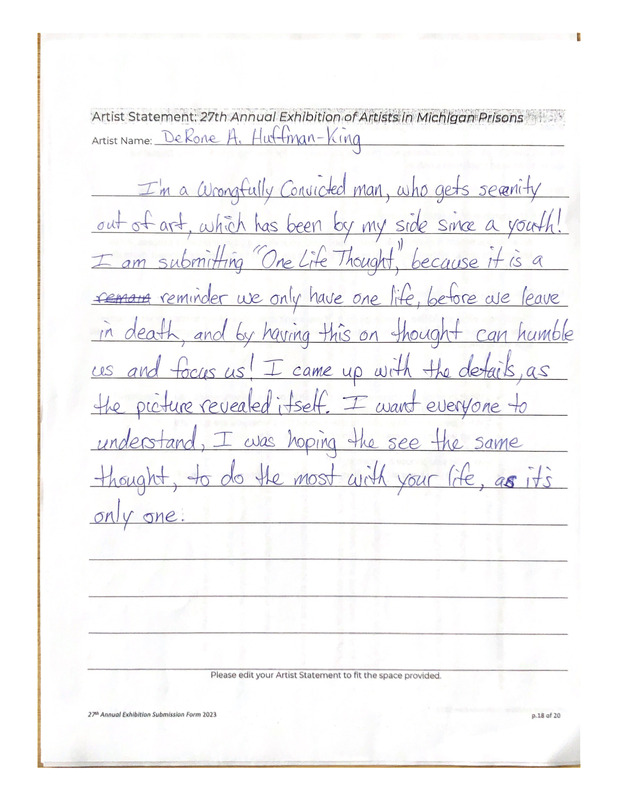 Artist Statement: 27th Annual Exhibition of Artists in Michigan Prisons
Artist Name: DeRone A. Huffman-King
I'm a Wrongfully Convicted man, who gets serenity
out of art, which has been by my side since a youth!
I am submitting "One Life Thought," because it is a
remain reminder we only have one life, before we leave
in death, and by having this on thought can humble
us and focus us! I came up with the details, as
the picture revealed itself. I want everyone to
understand, I was hoping the see the same
thought, to do the most with your life, as it's
only one.
Please edit your Artist Statement to fit the space provided.
27th Annual Exhibition Submission Form 2023
p.18 of 20